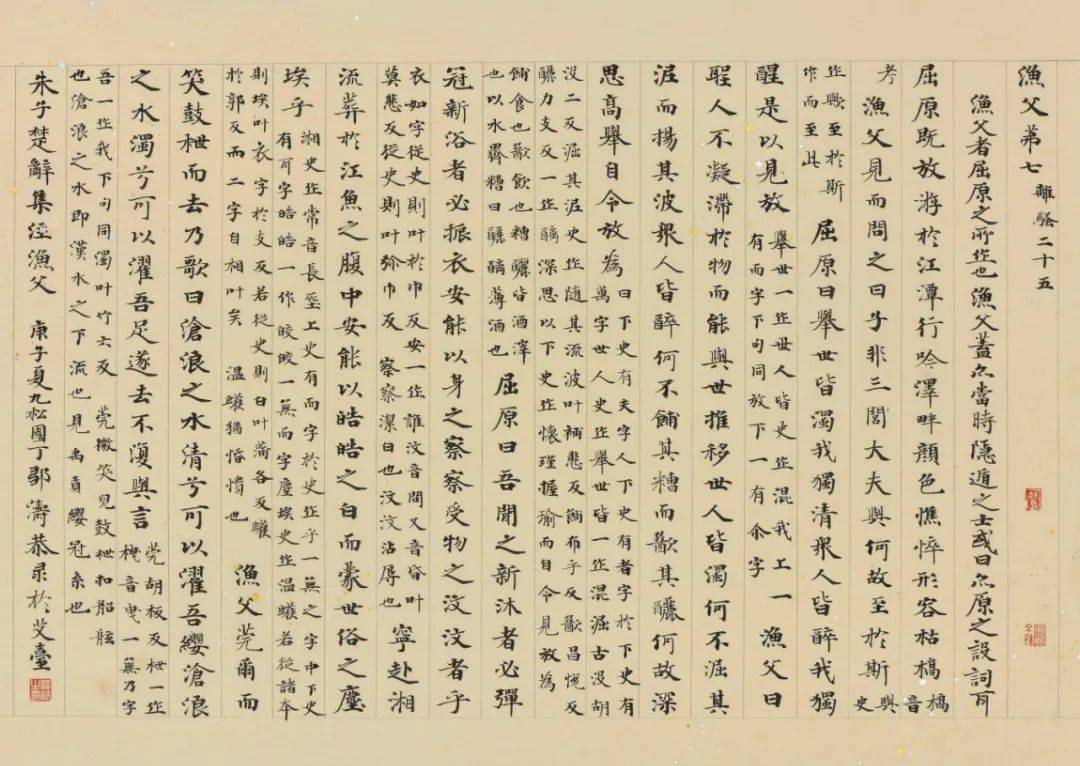 漁父第七 離騷二十五
漁父者屈原之所作也漁父蓋亦當時隱遁之士或曰亦原之設詞耳
屈原既放游於江潭行吟澤畔顏色憔悴形容枯槁 槁音
考 漁父見而問之曰子非三閭大夫與何故至於斯 與史
作歟至於斯
作而至此
屈原曰舉世皆濁我獨清衆人皆醉我獨
醒是以見放
舉世一作世人皆史作混我上一
有而字下句同放下一有尒字
漁父曰
聖人不凝滯於物而能與世推移世人皆濁何不淈其
泥而揚其波衆人皆醉何不餔其糟而歠其釃何故深
思高舉自令放為
曰下史有夫字人下史有者字於下史有
萬字世人史作舉世皆一作混淈古沒胡
沒二反淈其泥史作隨其流波叶補悲反餔布乎反歠昌悅反
釃力支反一作醨深思以下史作懷瑾握瑜而自令見放為
餔食也歠飲也糟釃皆酒滓
也以水糟曰釃醨薄酒也
屈原曰吾聞之新沐者必彈
冠新浴者必振衣安能以身之察察受物之汶汶者乎
衣如字從史則叶於巾反安一作誰汶音問又音昏叶
莫悲反從史則叶弥巾反 察察潔白也汶汶沾辱也
寧赴湘
流葬於江魚之腹中安能以皓皓之白而蒙世俗之塵
埃乎
湘史作常音長上史有而字於史作乎一無之字中下史
有耳字皓皓一作皎皎一無而字塵埃史作温蠖若從諸本
則埃叶衣字於支反若從史則白叶蒲各反蠖
於郭反而二字自相叶矣 温蠖猶惛憒也
漁父莞爾而
笑鼓枻而去乃歌曰滄浪之水清兮可以濯吾纓滄浪
之水濁兮可以濯吾足遂去不復與言
莞胡板反枻一作
栧音曳一無乃字
吾一作我下句同濁叶竹六反 莞微笑皃鼓枻扣船舷
也滄浪之水即漢水之下流也見禹貢纓冠系也
朱子楚辭集注漁父 庚子夏九松園丁鄒濤恭录於艾臺